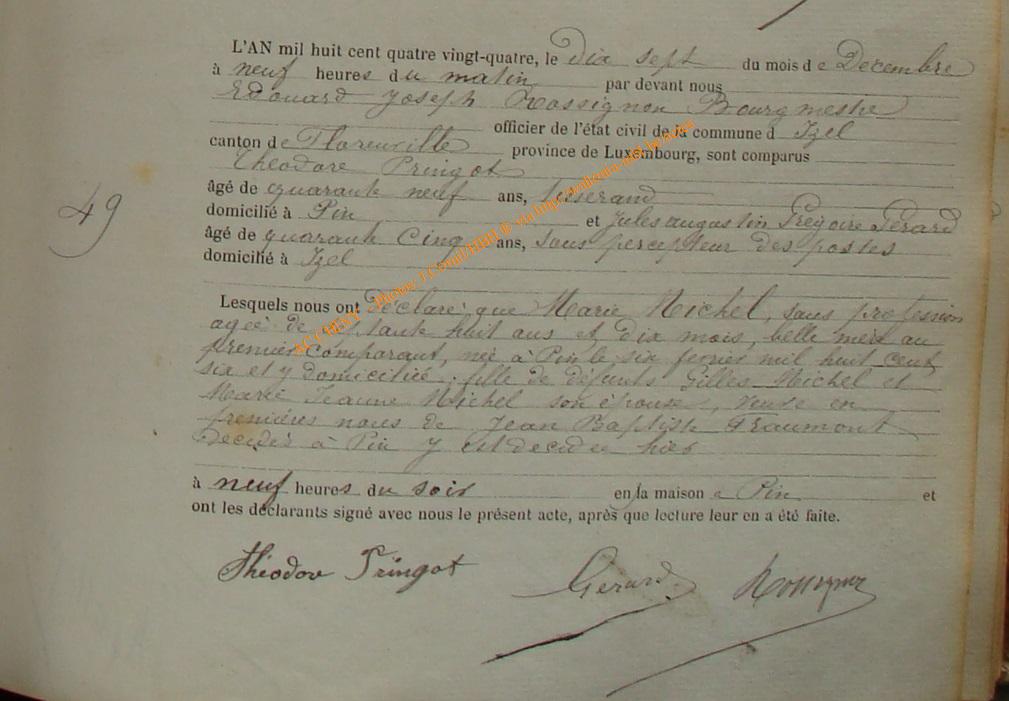 L'AN mil huit cent quatre vingt-quatre, le Dix sept du mois de Decembre
à neuf heures du matin par devant nous
Edouard Joseph Rossignon Bourgmestre
officier de l'état civil de la commune d Izel
canton de Florenville province de Luxembourg, sont comparus
Théodore Pringot
âgé de quarante neuf ans, tisserand
domicilié à Pin et Jules augustin Grégoire Gérard
âgé de quarante Cinq ans, sous percepteur des postes
domicilié à Izel
49
Lesquels nous ont déclaré que Marie Michel, sans profession
agée de septante huit ans et dix mois, belle mère au
premier Comparant, née à Pin le six fevrier mil huit cent
six et y domiciliée, fille de défunts Gilles Michel et
Marie Jeanne Michel son épouse, veuve en
premières noces de Jean Baptiste Fraumont
décédé à Pin y est décédée hier
à neuf heures du soir en la maison a Pin et
ont les déclarants signé avec nous le présent acte, après que lecture leur en a été faite.
Théodore Pringot Gérard Rossignon